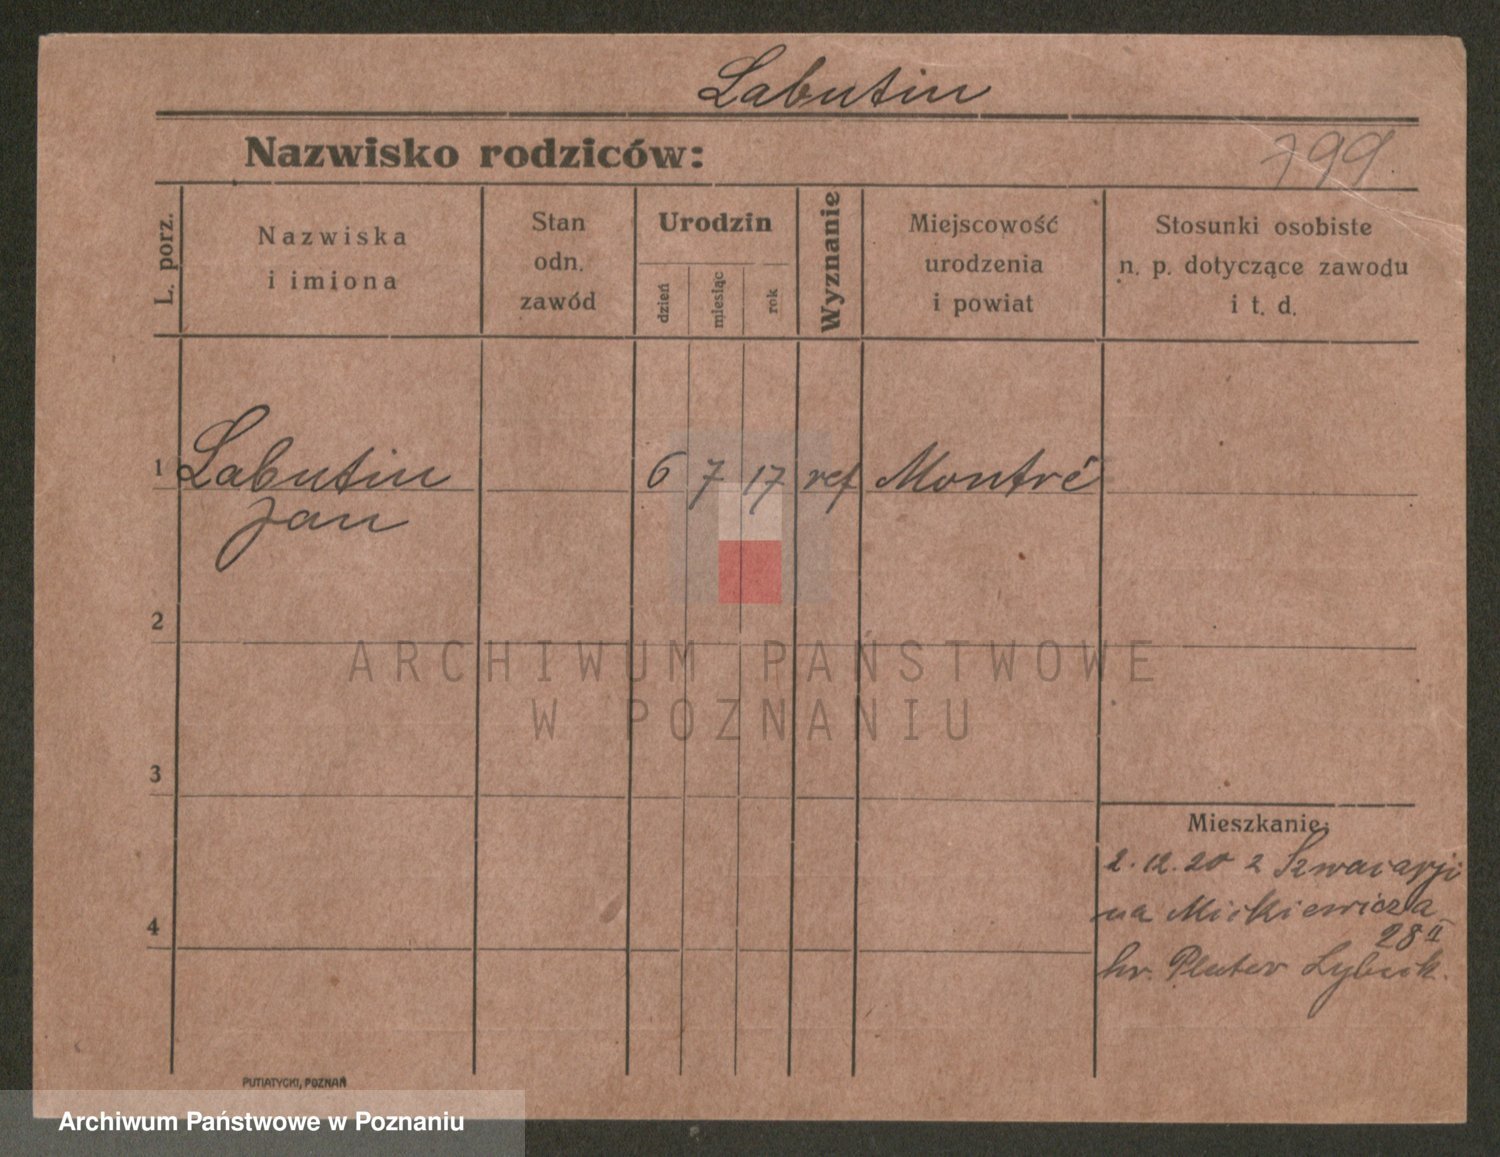 Labutin
Nazwisko rodziców:
799
L. porz.
Nazwiska
i imiona
Stan
odn.
zawód
Urodzin
dzień
miesiąc
rok
Wyznanie
Miejscowość
urodzenia
i powiat
Stosunki osobiste
n. p. dotyczące zawodu
i t. d.
1 Labutin 6 7 17 ref Montré
Jan
2
ARCHIWUM PAŃSTWOWE
W POZNANIU
3
Mieszkanie:
2.12.20 z Szwacarji
na Mickiewicza
28 II
4
hr. Plater
PUTIATYCKI, POZNAŃ
Archiwum Państwowe w Poznaniu